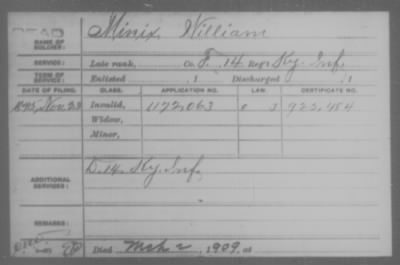 DEAD
NAME OF SOLDIER: Minix, William
SERVICE: Late rank, Co. F, 14 Reg't Ky. Inf.
TERM OF SERVICE: Enlisted , 1 Discharged , 1
DATE OF FILING. CLASS. APPLICATION NO. LAW. CERTIFICATE NO.
1895, Nov. 23 Invalid, 1172,063 923,484
Widow,
Minor,
ADDITIONAL SERVICES: D. 14. Ky. Inf.
REMARKS:
Died Mch 2, 1909, at